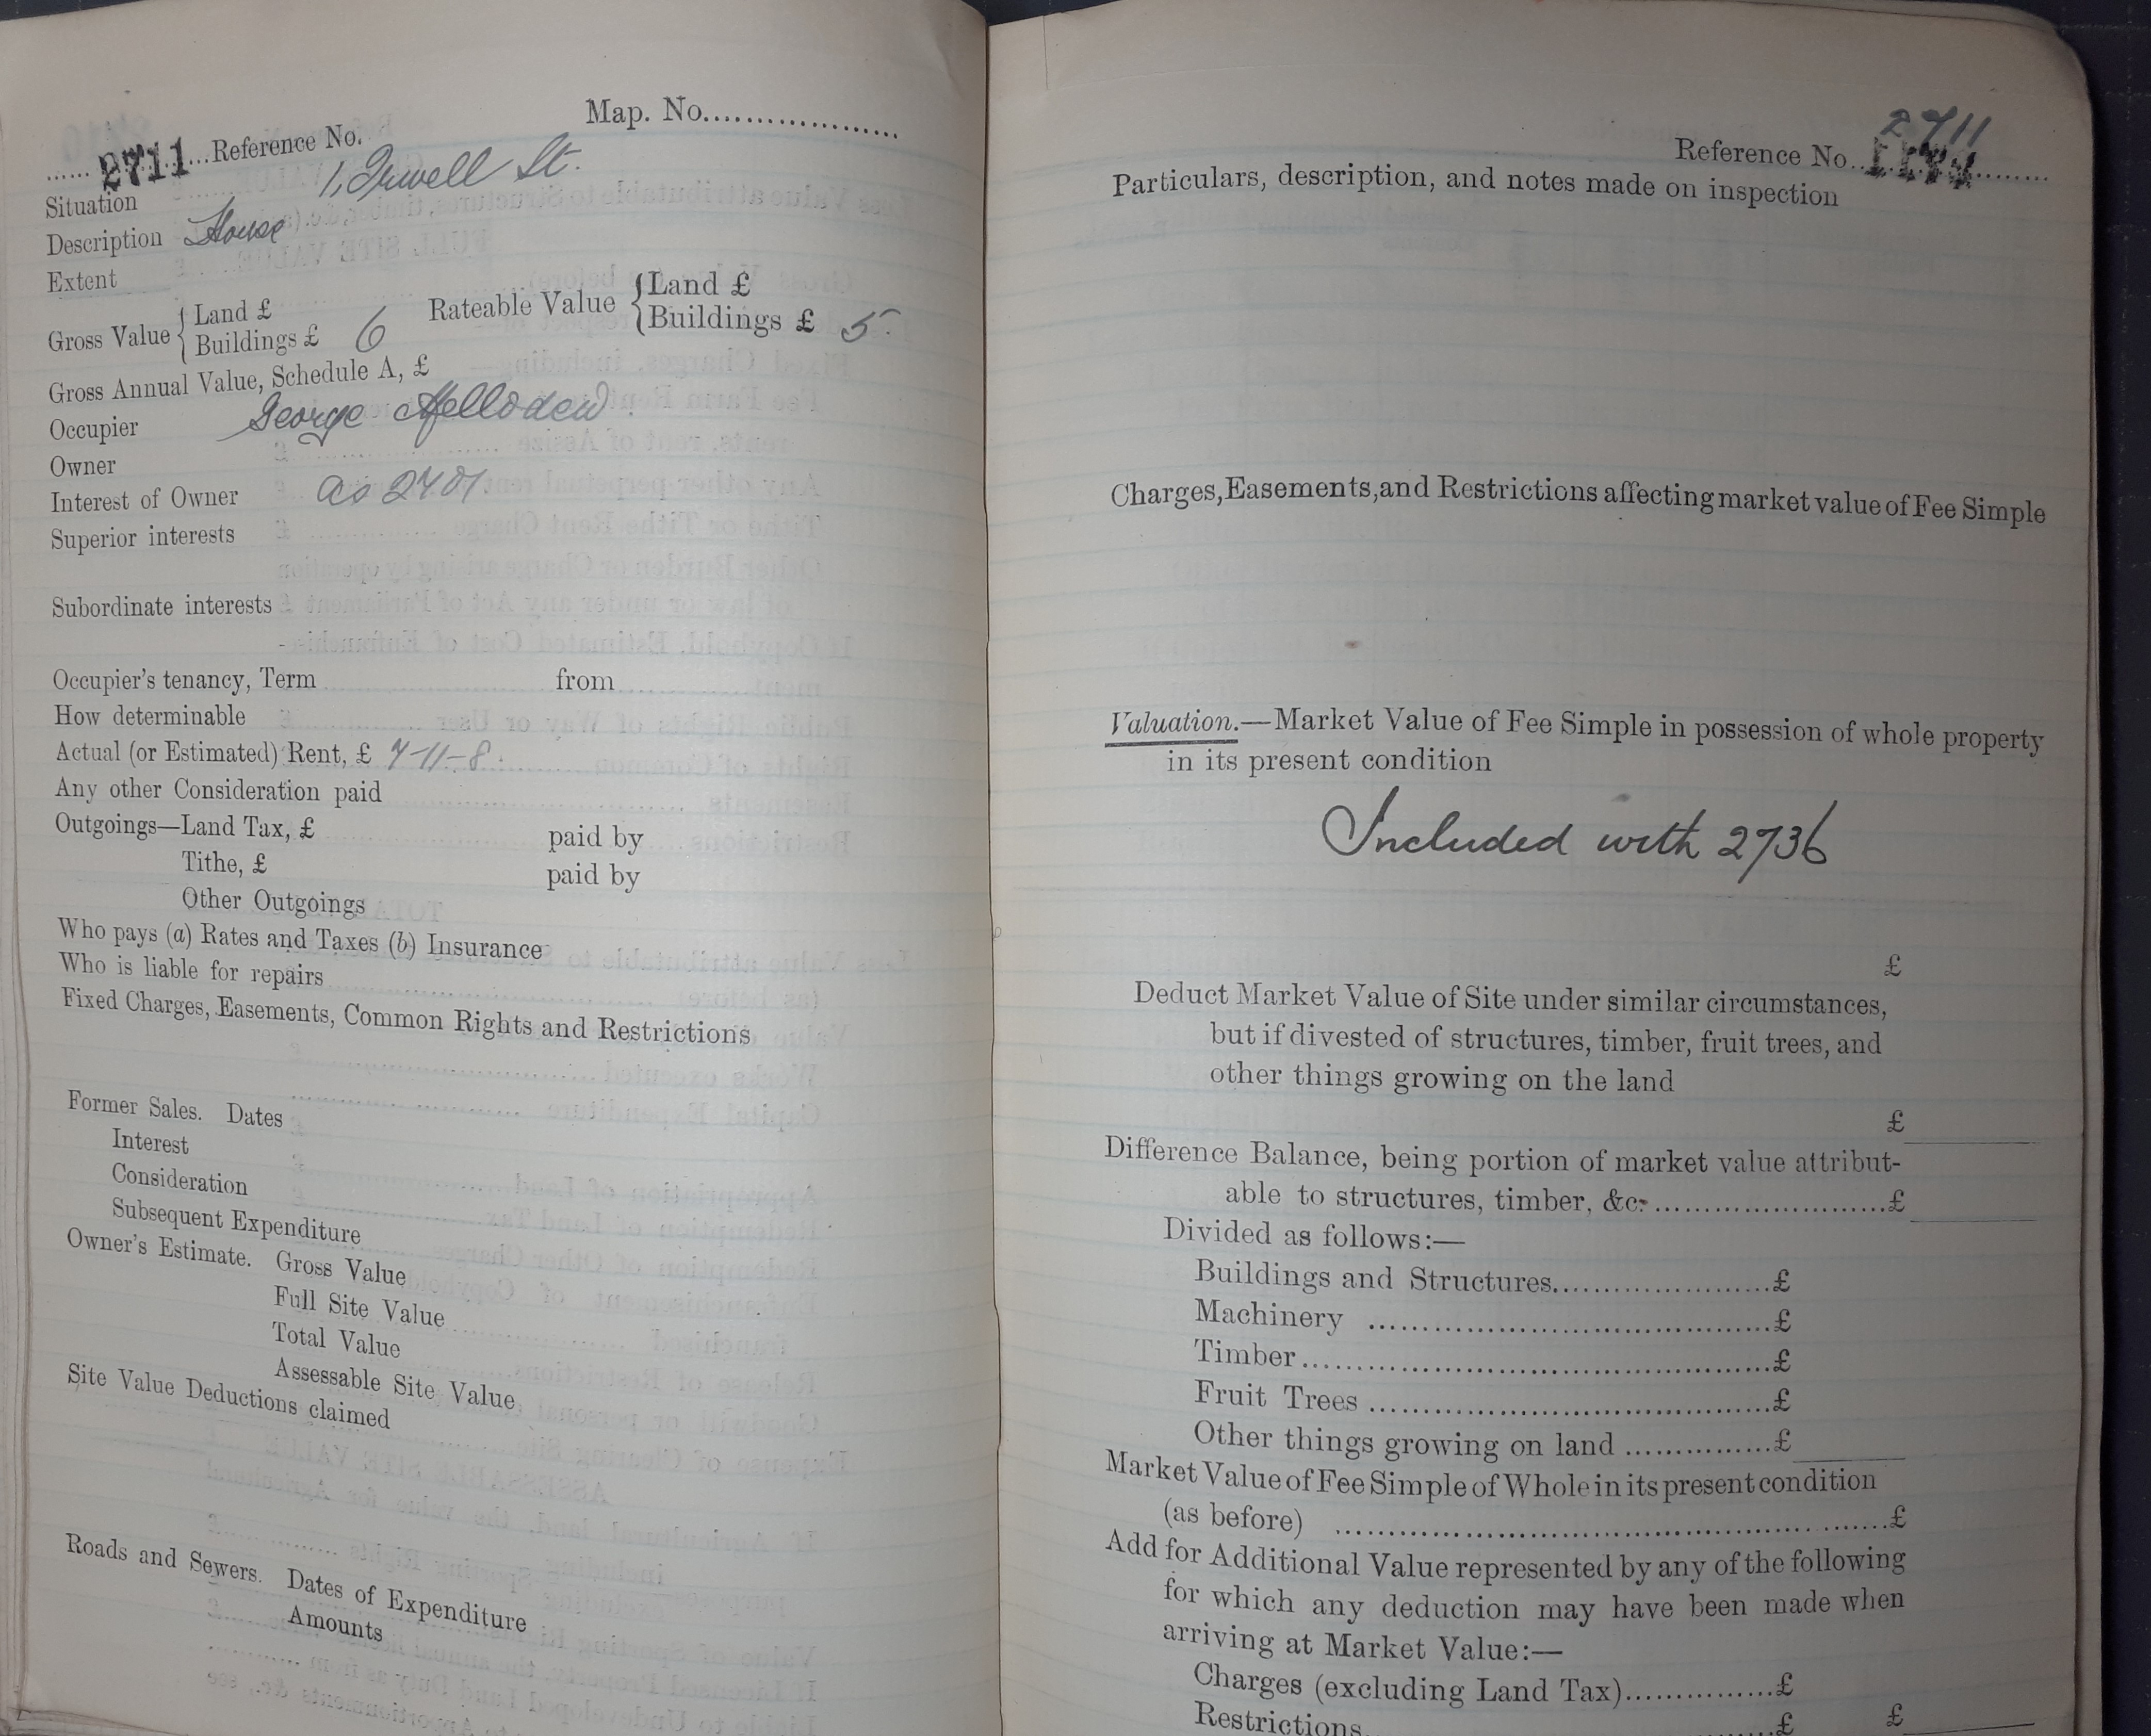 Map. No....................
......2711...Reference No.
Situation 1, Irwell St.
Description House
Extent
Gross Value { Land £ Buildings £ 6 Rateable Value { Land £ Buildings £ 5
Gross Annual Value, Schedule A, £
Occupier George Mellodew
Owner
Interest of Owner as 2701.
Superior interests
Subordinate interests
Occupier's tenancy, Term from
How determinable
Actual (or Estimated) Rent, £ 7-11-8.
Any other Consideration paid
Outgoings—Land Tax, £ paid by
Tithe, £ paid by
Other Outgoings
Who pays (a) Rates and Taxes (b) Insurance
Who is liable for repairs
Fixed Charges, Easements, Common Rights and Restrictions
Former Sales. Dates
Interest
Consideration
Subsequent Expenditure
Owner's Estimate. Gross Value
Full Site Value
Total Value
Assessable Site Value
Site Value Deductions claimed
Roads and Sewers. Dates of Expenditure
Amounts
2711
Reference No.
Particulars, description, and notes made on inspection
Charges, Easements, and Restrictions affecting market value of Fee Simple
Valuation.—Market Value of Fee Simple in possession of whole property
in its present condition
Included with 2736
£
Deduct Market Value of Site under similar circumstances,
but if divested of structures, timber, fruit trees, and
other things growing on the land
£
Difference Balance, being portion of market value attribut-
able to structures, timber, &c. ..........................£
Divided as follows:—
Buildings and Structures........................£
Machinery ............................................£
Timber....................................................£
Fruit Trees ............................................£
Other things growing on land ................£
Market Value of Fee Simple of Whole in its present condition
(as before) ................................................................£
Add for Additional Value represented by any of the following
for which any deduction may have been made when
arriving at Market Value:—
Charges (excluding Land Tax)................£
Restrictions..........£ £